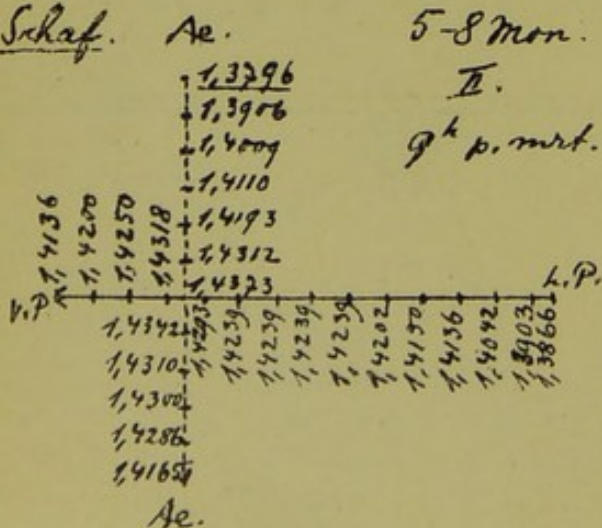 Schaf. Ae. 5-8 Mon.
II.
9h p. mrt.
1,3796
1,3906
1,4009
1,4110
1,4193
1,4312
1,4373
1,4136
1,4200
1,4250
1,4318
v.P.
h.P.
1,4293
1,4239
1,4239
1,4239
1,4239
1,4202
1,4150
1,4136
1,4042
1,3903
1,3866
1,4342
1,4310
1,4300
1,4286
1,4165
Ae.